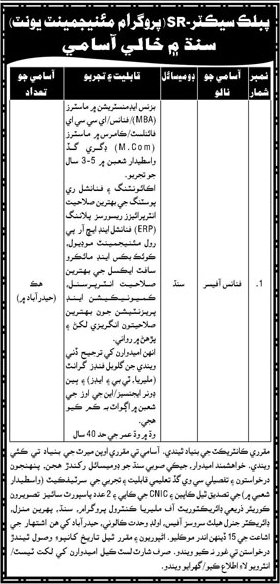 پبلڪ سيڪٽر-SR (پروگرام مئنيجمينٽ يونٽ)
سنڌ ۾ خالي آسامي
نمبر شمار
آسامي جو نالو
ڊوميسائل
قابليت ۽ تجربو
آسامي جو تعداد
1.
فنانس آفيسر
سنڌ
بزنس ايڊمنسٽريشن ۾ ماسٽرز
(MBA)/فنانس/اي سي سي اي
فائنلسٽ/ڪامرس ۾ ماسٽرز
(M.Com) ڊگري گڏ
واسطيدار شعبن ۾ 3-5 سال
جو تجربو.
اڪائونٽنگ ۽ فنانشل رپورٽنگ جي بهترين صلاحيت
انٽرپرائيزز ريسورسز پلاننگ
(ERP) فنانشل اينڊ ايڇ آر پي
رول مئنيجمينٽ موڊيول،
ڪوئڪ بڪس اينڊ مائڪرو
سافٽ ايڪسل جي بهترين
صلاحيت انٽرپرسنل،
ڪميونيڪيشن اينڊ
پريزنٽيشن جون بهترين
صلاحيتون انگريزي لکڻ ۽
پڙهڻ ۾ رواني.
انهن اميدوارن کي ترجيح ڏني
ويندي جن گلوبل فنڊز گرانٽ
(مليريا، ٽي بي ۽ ايڊز) ۽ ٻين
ڊونر ايجنسيز/اين جي اوز جي
شعبن ۾ اڳواٽ به ڪم ڪيو
هجي.
وڌ ۾ وڌ عمر جي حد 40 سال
هڪ
(حيدرآباد ۾)
مقرري ڪانٽريڪٽ جي بنياد ٿيندي. آسامي تي مقرري اوپن ميرٽ جي بنياد تي ڪئي
ويندي. خواهشمند اميدوار، جيڪي صوبي سنڌ جو ڊوميسائل رکندڙ هجن، پنهنجون
درخواستون ۽ تفصيلي سي وي گڏ تعليمي قابليت ۽ تجربي جي سرٽيفڪيٽ (واسطيدار
شعبي ۾) جي تصديق ٿيل ڪاپين ۽ CNIC جي ڪاپي ۽ 2 عدد پاسپورٽ سائيز تصويرون
ڪوريئر ذريعي ڊائريڪٽوريٽ آف مليريا ڪنٽرول پروگرام، سنڌ، پهرين منزل،
ڊائريڪٽر جنرل هيلٿ سروسز آفيس، اولڊ وحدت ڪالوني، حيدرآباد کي هن اشتهار جي
اشاعت جي 15 ڏينهن اندر موڪليو. اڻپوريون ۽ مقرر ٿيل تاريخ کانپوءِ وصول ٿيندڙ
درخواستن تي غور نه ڪيو ويندو. صرف شارٽ لسٽ ڪيل اميدوارن کي لکت ٽيسٽ/
انٽرويو لاءِ اطلاع ڪيو/گهرايو ويندو.